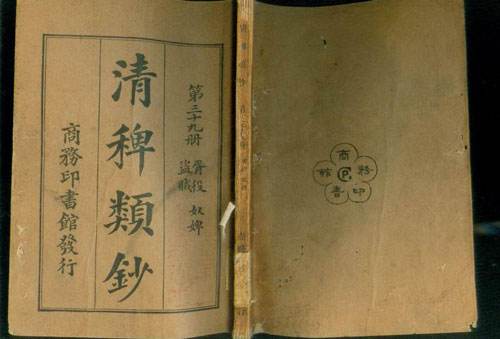 第三十九册
胥役 奴婢
盜賊
清稗類鈔
商務印書館發行
商務印書館